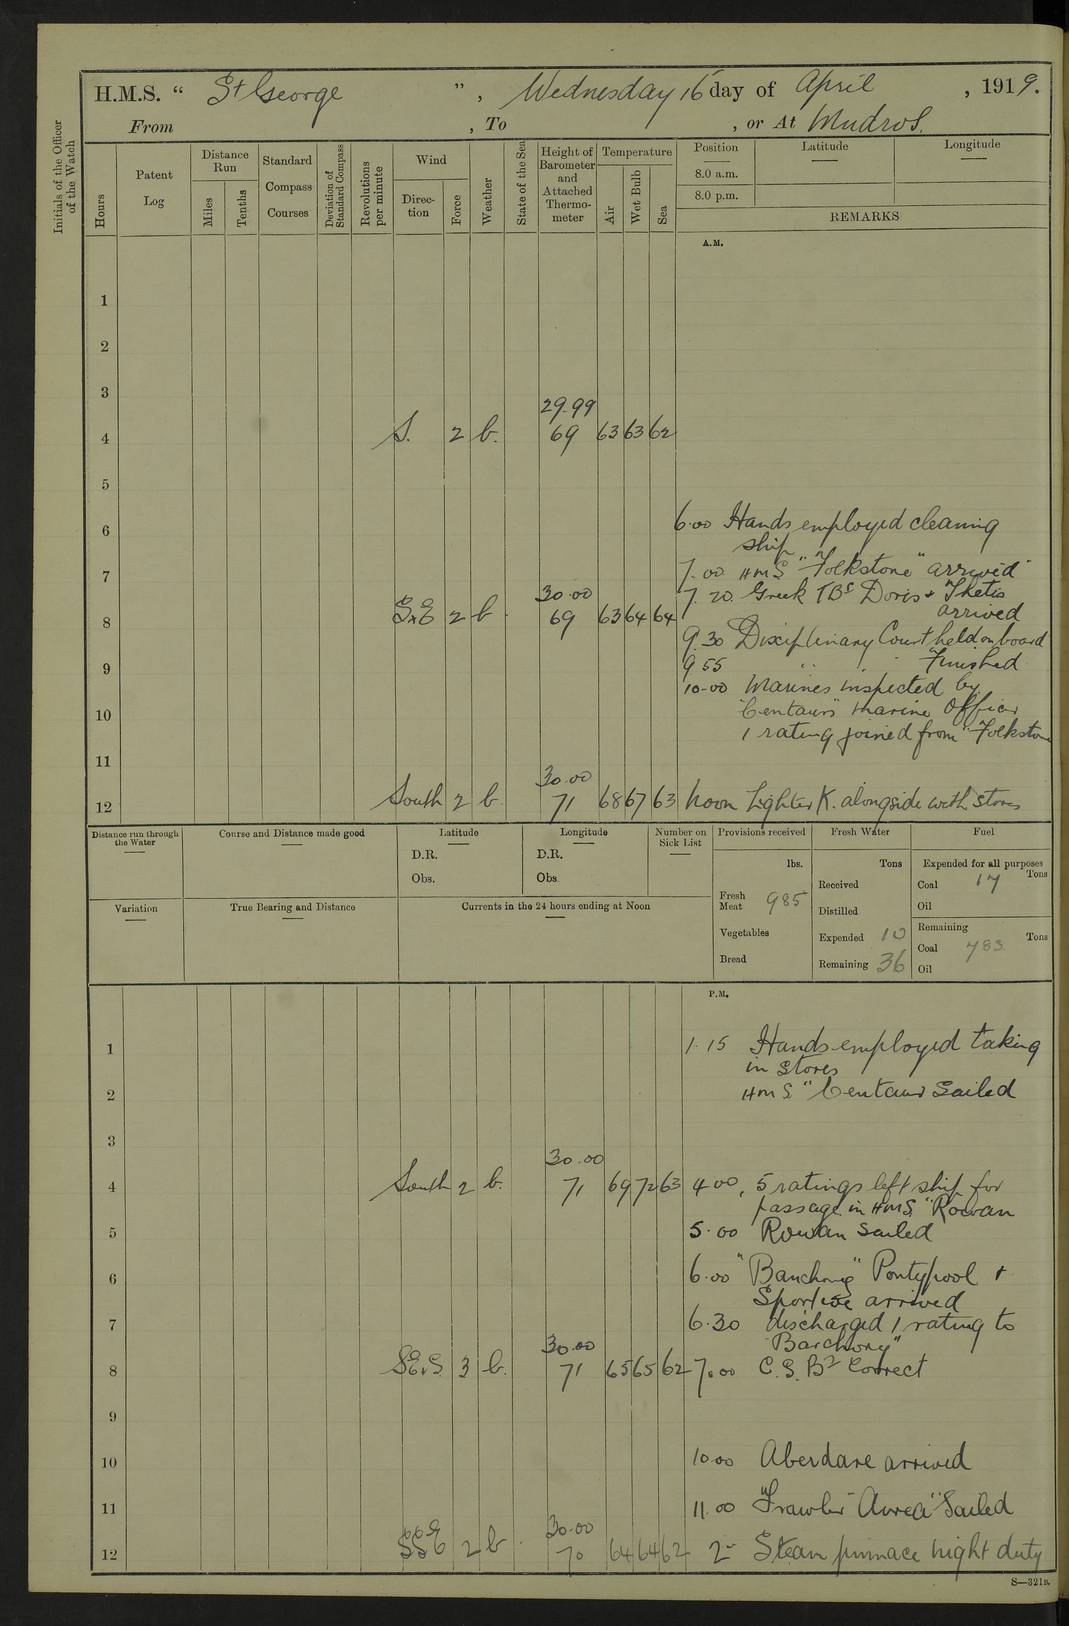 H.M.S. “ St George ”, Wednesday 16 day of April, 1919.
From , To , or At Mudros.
Initials of the Officer of the Watch
Hours
Patent Log
Distance Run
Miles
Tenths
Standard Compass Courses
Deviation of Standard Compass
Revolutions per minute
Wind
Direction
Force
Weather
State of the Sea
Height of Barometer and Attached Thermometer
Temperature
Air
Wet Bulb
Sea
Position
8.0 a.m.
8.0 p.m.
Latitude
Longitude
REMARKS
A.M.
1
2
3
29.99
4 S. 2 b. 69 63 63 62
5
6.00 Hands employed cleaning
6
ship
7.00 HMS "Folkstone" arrived
7
30.00 7.20. Greek TBs Doris + Thetis
arrived
8 2 b 69 63 64 64
9.30 Disciplinary Court held on board
9.55 " " " Finished
9
10.00 Marines inspected by
"Centaurs" marine Officer
10
1 rating joined from "Folkstone
11
30.00
12 South 2 b. 71 68 67 63 Noon Lighter K. alongside with stores
Distance run through the Water
Course and Distance made good
Latitude
D.R.
Obs.
Longitude
D.R.
Obs.
Number on Sick List
Provisions received
lbs.
Fresh Meat 985
Vegetables
Bread
Fresh Water
Tons
Received
Distilled
Expended 10
Remaining 36
Fuel
Expended for all purposes
Tons
Coal 17
Oil
Remaining
Tons
Coal 783
Oil
Variation
True Bearing and Distance
Currents in the 24 hours ending at Noon
P.M.
1 1.15 Hands employed taking
in stores
2 HMS "Centaur Sailed
3
30.00
4 South 2 b. 71 69 72 63 4.00, 5 ratings left ship for
passage in HMS "Rowan
5 5.00 Rowan sailed
6 6.00 Pontypool +
Sportive arrived
7 6.30 discharged 1 rating to
30.00 "Barchony"
8 3 b. 71 65 65 62 7.00 C.S.Bs Correct
9
10 10.00 Aberdare arrived
11 11.00 Trawler "Aurea" Sailed
30.00
12 2 b. 70 64 64 62 2- Steam pinnace night duty
S—321B.